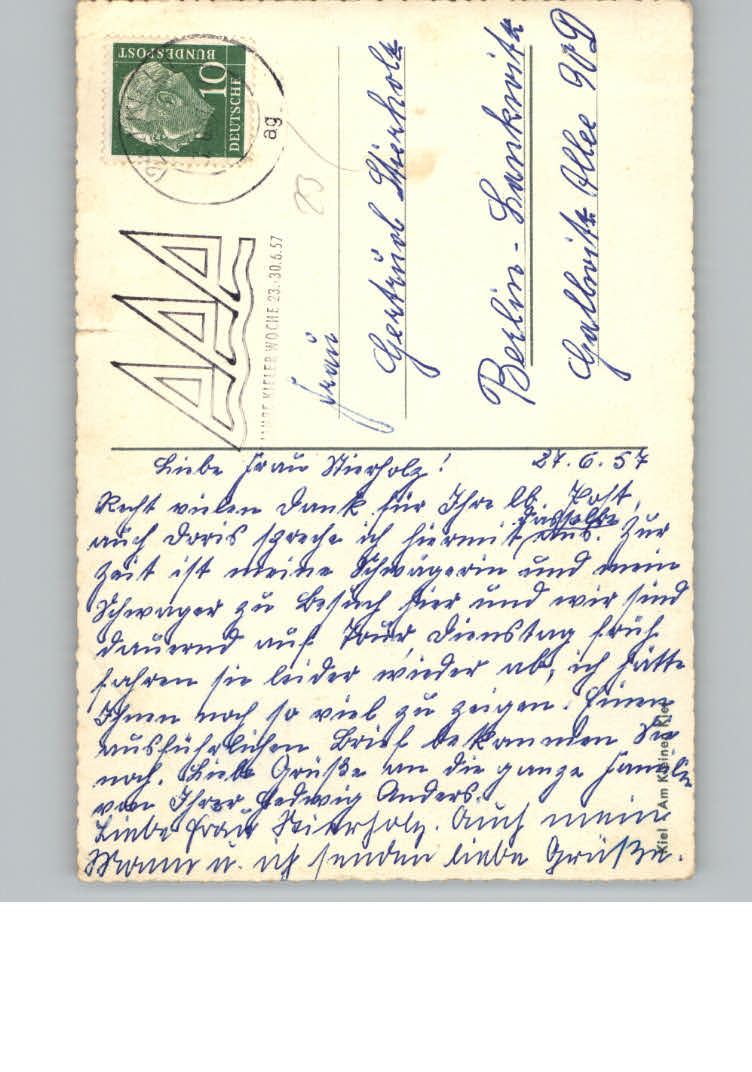 DEUTSCHE
BUNDESPOST
10
ag
JAHRE KIELER WOCHE 23.-30.6.57
23
Frau
Gertrud Stierholz
Berlin-Lankwitz
Gallwitz Allee 90D
27.6.57
Liebe Frau Stierholz!
Recht vielen Dank für Ihre lb. Post,
auch Doris spreche ich hiermit dasselbe aus. Zur
Zeit ist meine Schwägerin und mein
Schwager zu Besuch hier und wir sind
dauernd auf Tour, Dienstag früh
fahren sie leider wieder ab, ich hätte
Ihnen noch so viel zu zeigen. Einen
ausführlichen Brief bekommen Sie
noch. Liebe Grüße an die ganze Familie
von Ihrer Hedwig Anders.
Liebe Frau Stierholz. Auch mein
Mann u. ich senden liebe Grüße.
Kiel Am Kleinen Kiel